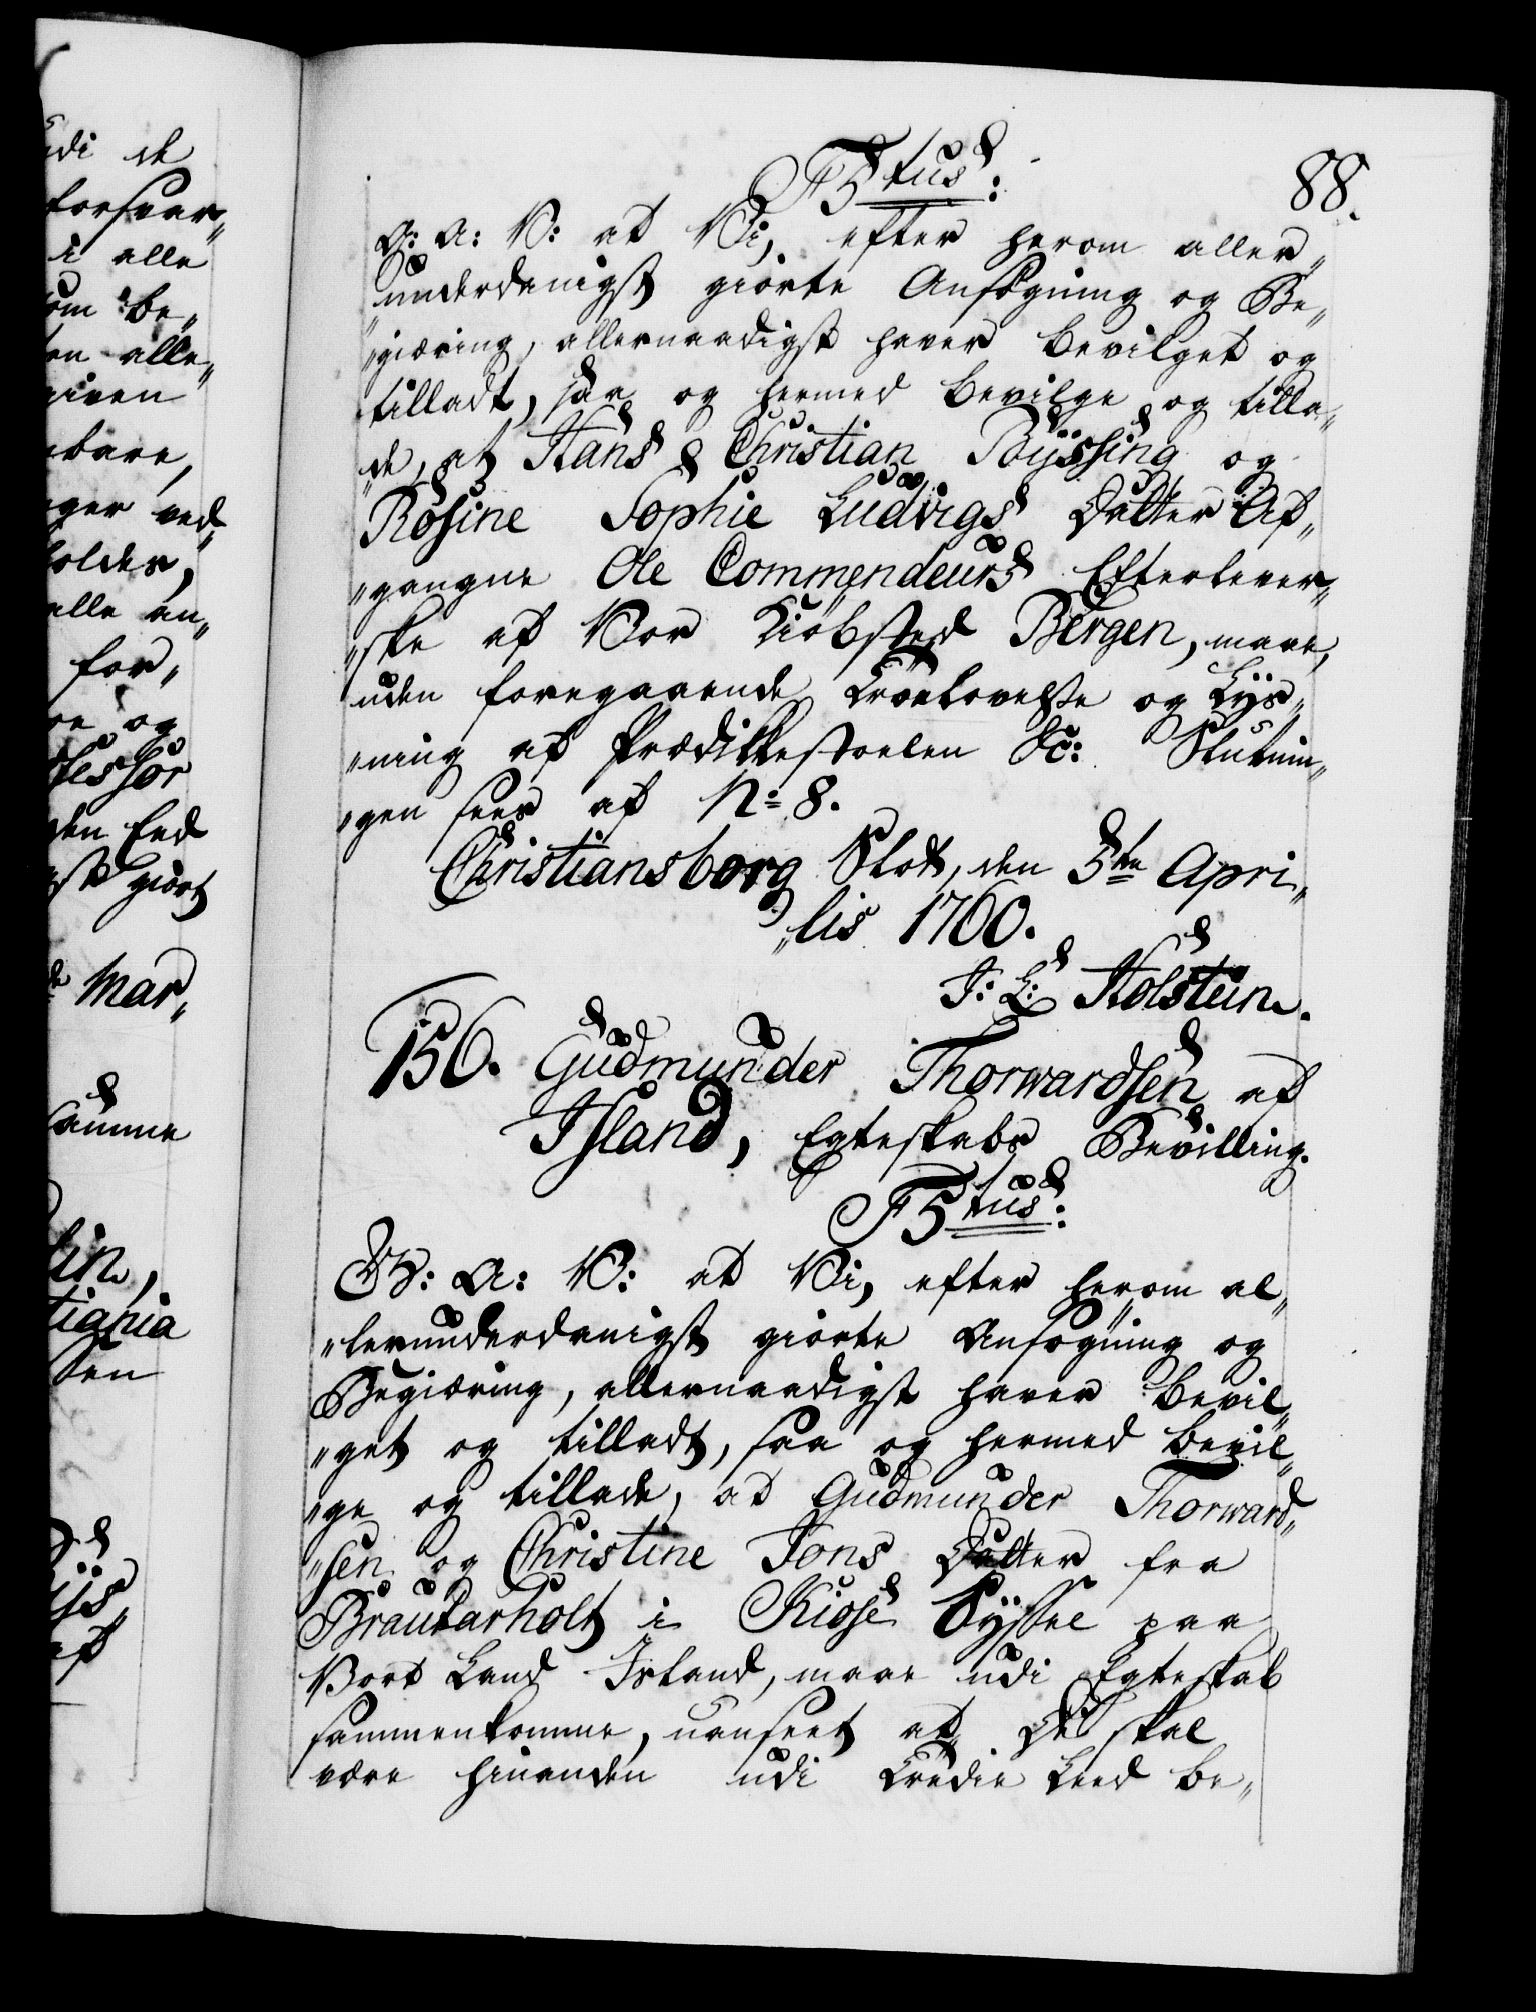 F5tus:
88.
G: A: V: at Vi, efter herom aller„
underdanigst giorte Ansøgning og Be„
„giæring, allernaadigst haver bevilget og
tilladt, saa og hermed bevilge og tilla„
„de, at Hans Christian Büssing og
Rosine Sophie Ludvigs Datter Af„
„gangne Ole Commendeurs Efterlever„
„ske af Vor Kiøbsted Bergen, maae,
uden foregaaende Troelovelse og Lys„
„ning af Prædikkestoelen &c: Slutnin„
„gen sees af No 8.
Christiansborg Slot, den 5te Apri„
„lis 1760.
J: L: Holstein.
156. Gudmunder Thorwardsen af
Island, Egteskabs Bevilling.
F5tus:
G: A: V: at Vi, efter herom al„
„lerunderdanigst giorte Ansøgning og
Begiæring, allernaadigst haver bevil„
„get og tilladt, saa og hermed bevil„
„ge og tillade, at Gudmunder Thorward„
„sen og Christine Jons Datter fra
Brautarholt i Kiose Syssel paa
Vort Land Island, maae udi Egteskab
sammenkomme, uanseet at De skal
være hinanden udi Tredie Leed be„